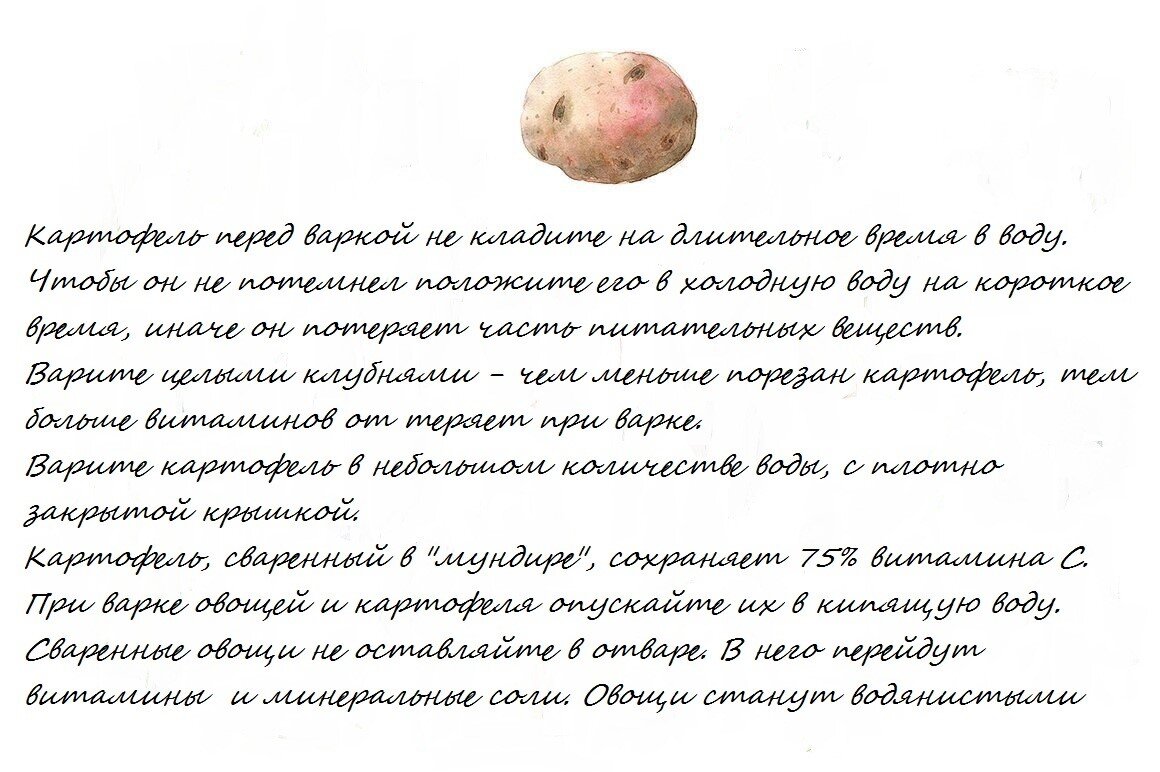 Картофель перед варкой не кладите на длительное время в воду.
Чтобы он не потемнел положите его в холодную воду на короткое
время, иначе он потеряет часть питательных веществ.
Варите целыми клубнями - чем меньше порезан картофель, тем
больше витаминов от теряет при варке.
Варите картофель в небольшом количестве воды, с плотно
закрытой крышкой.
Картофель, сваренный в "мундире", сохраняет 75% витамина С.
При варке овощей и картофеля опускайте их в кипящую воду.
Сваренные овощи не оставляйте в отваре. В него перейдут
витамины и минеральные соли. Овощи станут водянистыми